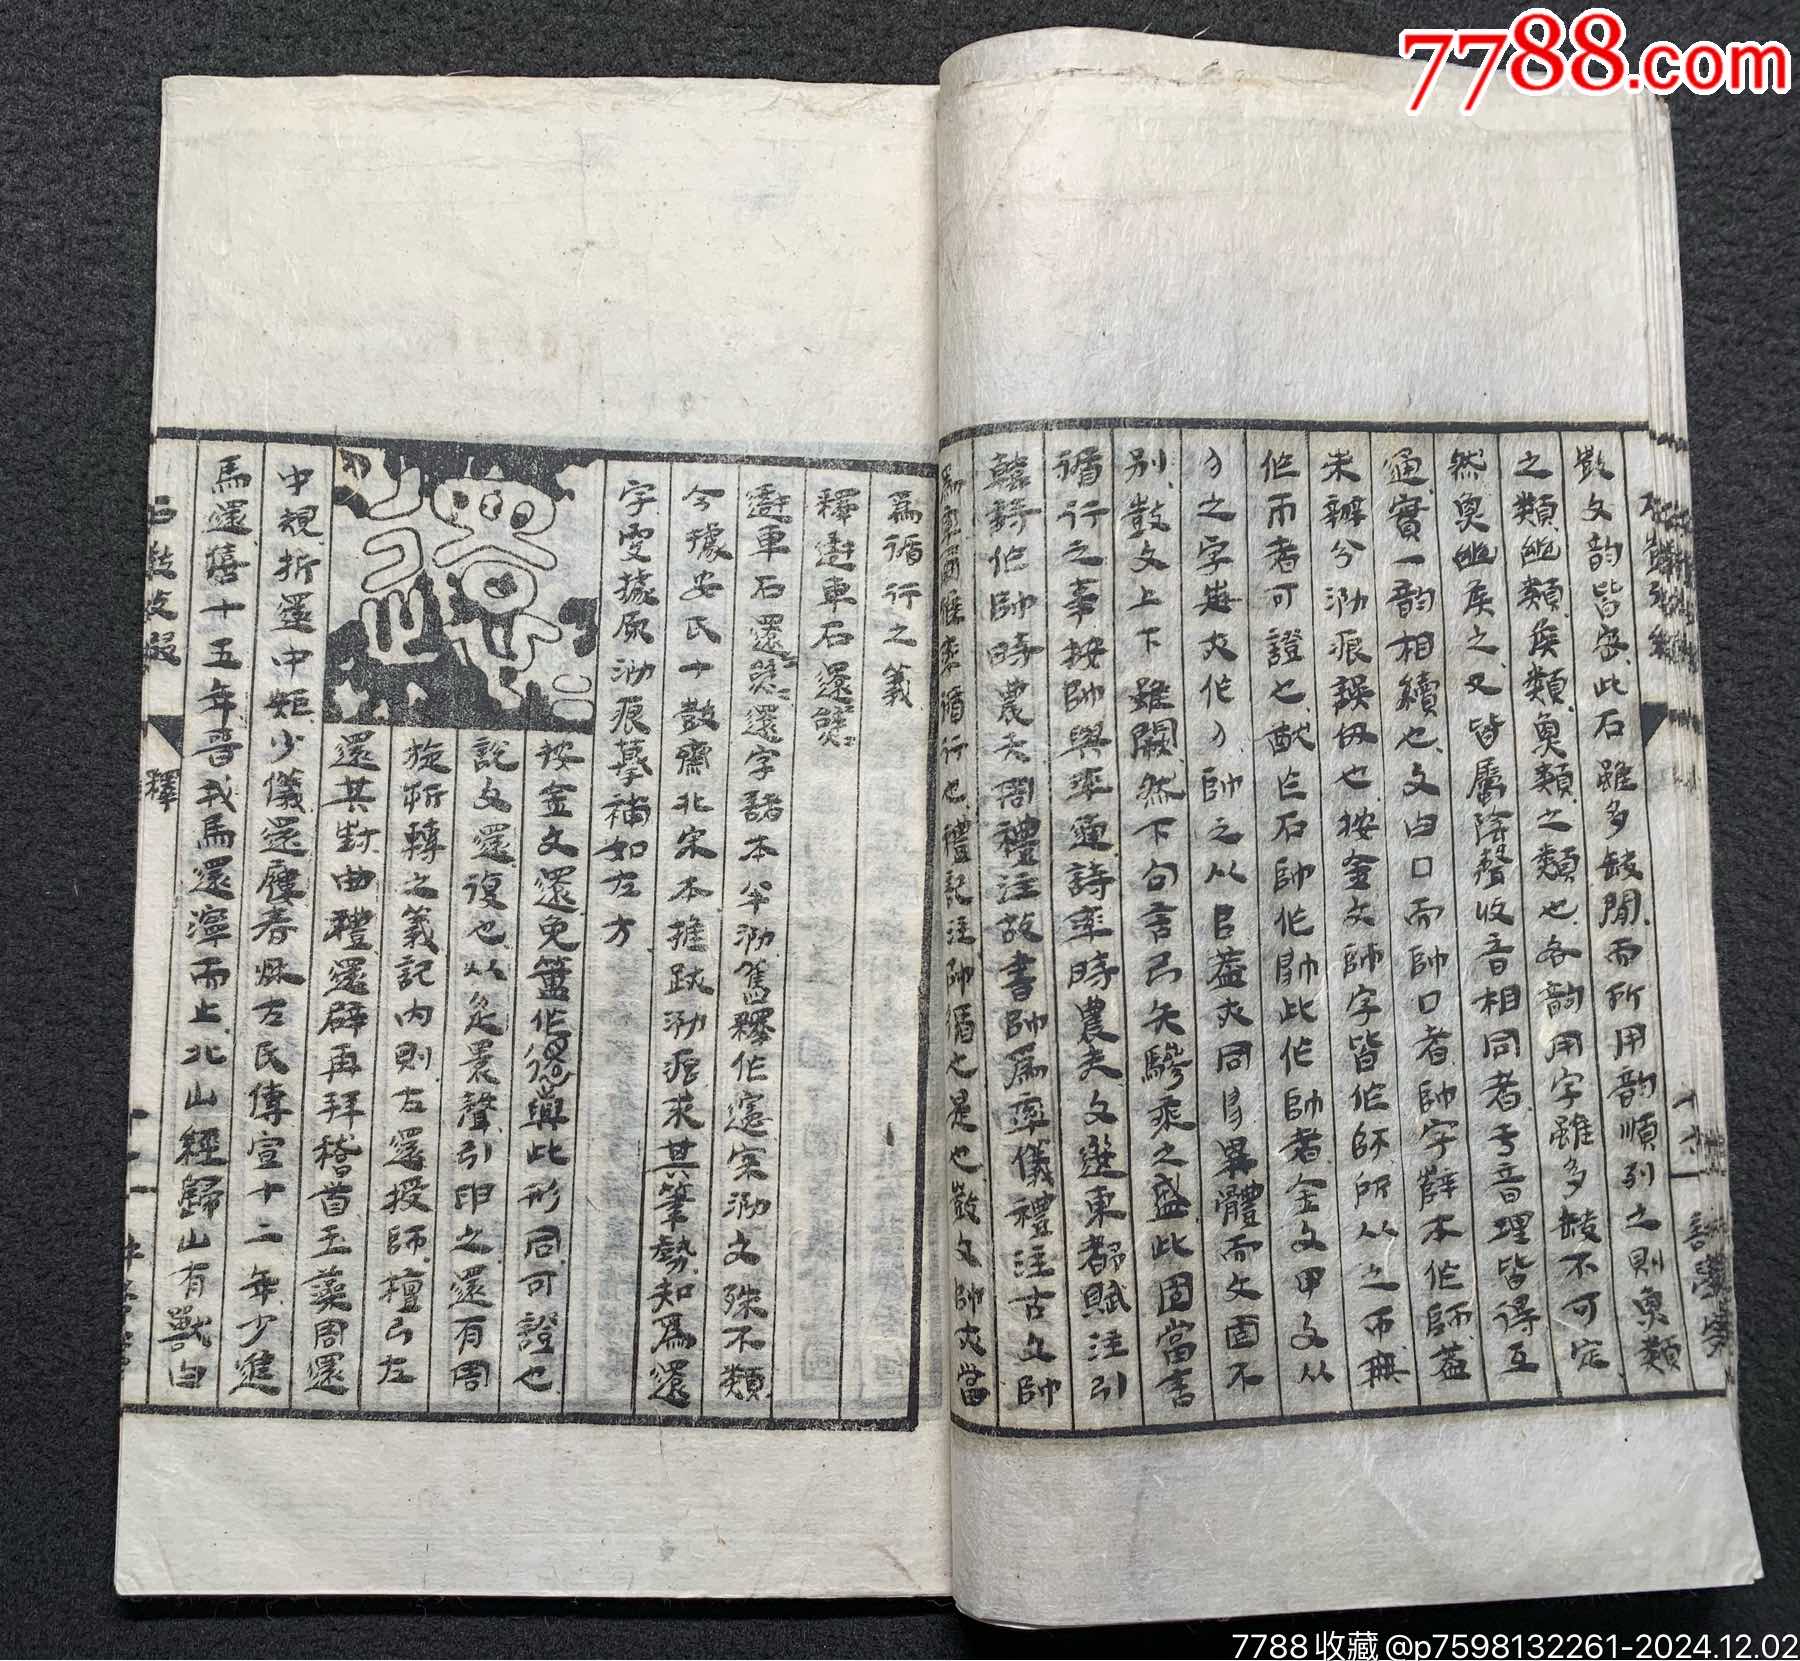 7788.com
鼓文韵皆密此石雖多缺閒而所用韵順列之則魚類
之類幽類矦類魚類之類也各韵用字雖多缺不可定
然魚幽矦之又皆屬陰聲收音相同者于音理皆得互
通實一韵相續也文白口而帥口者帥字薛本作師蓋
未辦兮泐痕誤仞也按金文師字皆作師所从之帀無
作帀者可證也猷乍石帥作帥此作帥者金文甲文从
之字無夾作帥之从𠂤蓋夾同異體而文固不
別鼓文上下雖闕然下句言弓矢驂乘之盛此固當言
循行之事按帥與率通詩率時農夫文選東都賦注引
韓詩作帥時農夫周禮注故書帥爲率儀禮注古文帥
爲率循行也禮記注帥循也是也鼓文帥夾當
爲循行之義
釋避車石還
避車石還還字諸本半泐舊釋作宋泐文殊不類
今據安氏十鼓齋北宋本推跋泐痕求其筆勢知爲還
字更據原泐痕摹補如左方
按金文還免簠作與此形同可證也
說文還復也从辵睘聲引申之還有周
旋折轉之義記內則右還授師檀弓左
還其封曲禮還辟再拜稽首玉藻周還
中規折還中矩少儀還屨春秋左氏傳宣十二年少進
馬還僖十五年晉戎馬還濘而止北山經歸山有獸
石鼓文
釋
十一
7788收藏@p7598132261-2024.12.02